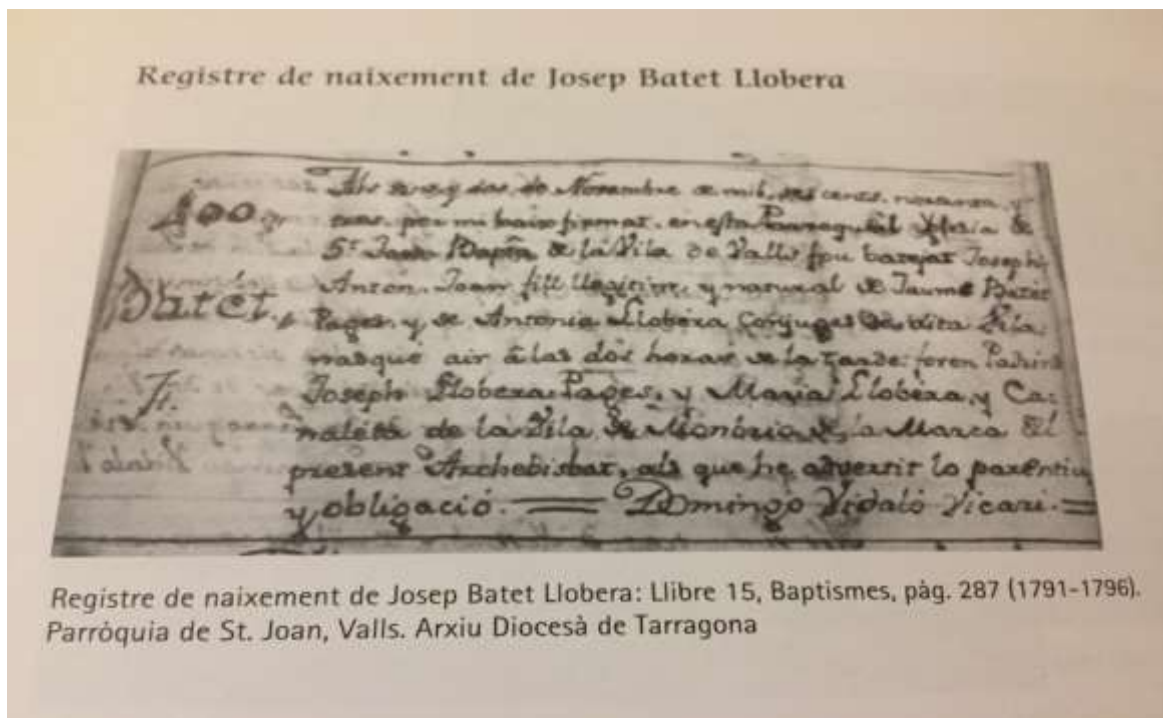 Registre de naixement de Josep Batet Llobera
Als de Novembre de mil, set cents, noranta, y
tres, per mi baix firmat, en esta Parroquial Iglesia de
St. Joan Bapta de la Vila de Valls fou batejat Joseph,
Anton, Joan fill llegitim, y natural de Jaume Batet
Batet,
Pages, y de Antonia Llobera Conjuges de dita Vila
nasqué air á las dos horas de la tarde: foren Padrins
Joseph Llobera Pages, y Maria Llobera, y Ca-
naleta de la Vila de la Marca del
present Archebisbat, als que he advertit lo parentiu
y obligació. = Domingo Vidaló Vicari. =
Registre de naixement de Josep Batet Llobera: Llibre 15, Baptismes, pàg. 287 (1791-1796).
Parròquia de St. Joan, Valls. Arxiu Diocesà de Tarragona